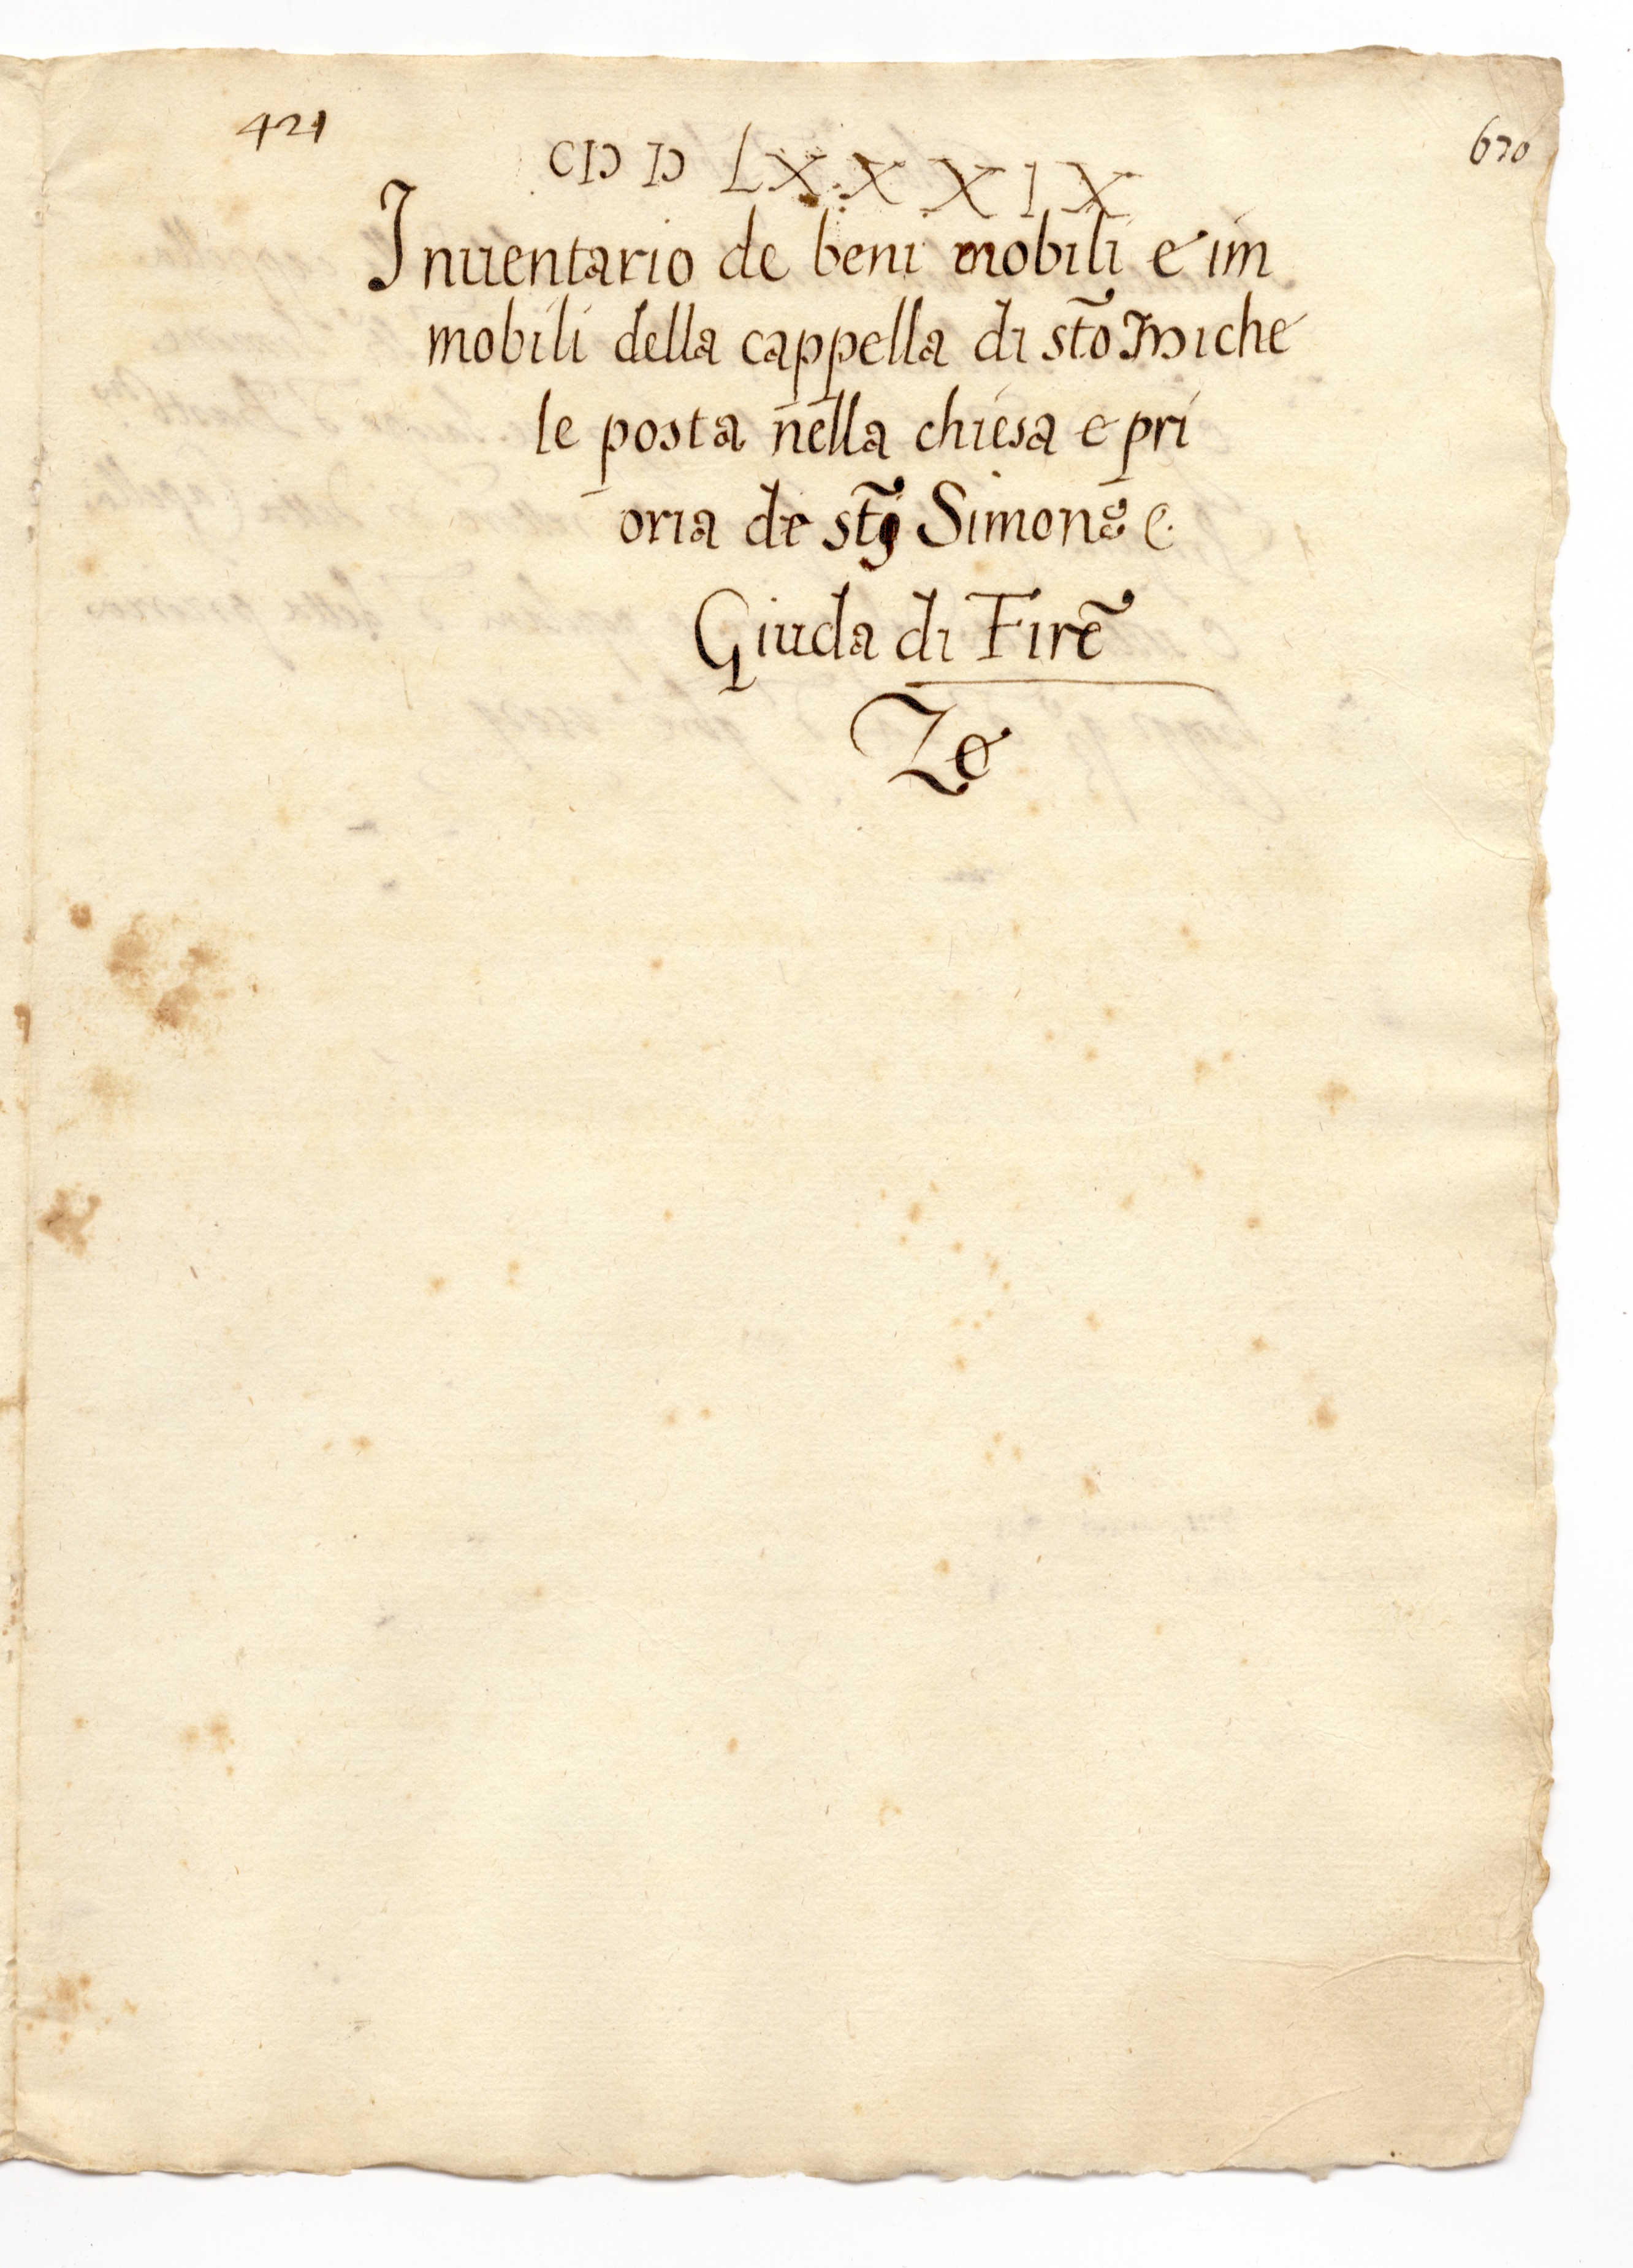 421
670
CIƆ IƆ LXXXIX
Inuentario de beni mobili e im
mobili della cappella di sto͂ Miche
le posta nella chiesa e pri
oria de sti͂ Simone e
Giuda di Fire͂
Ze